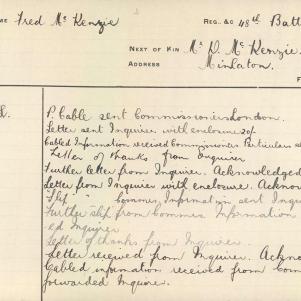 ME Fred Mc Kenzie REG. &C 48th Batt
NEXT OF KIN Mr D. Mc Kenzie
ADDRESS Minlaton.
P. Cable sent Commissioner London.
Letter sent Inquirer with enclosure
Cabled Information received Commissioners Particulars
Letter of thanks from Inquirer
Further letter from Inquirer. Acknowledged
Letter from Inquirer with enclosure. Acknow
Slip " Commss. Information sent Inqui
Further slip from Commss Information
ed Inquirer
Letter of thanks from Inquirer.
Letter received from Inquirer. Ackno
Cabled information received from Com
forwarded Inquirer.